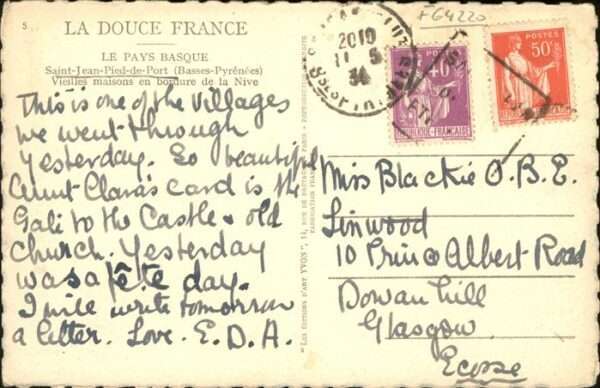 5.
LA DOUCE FRANCE
LE PAYS BASQUE
Saint-Jean-Pied-de-Port (Basses-Pyrénées)
Vieilles maisons en bordure de la Nive
This is one of the villages
we went through
yesterday. So beautiful
Aunt Clara's card is the
Gate to the Castle & old
church. Yesterday
was a fête day.
I will write tomorrow
a letter. Love. E.D.A.
"LES ÉDITIONS D'ART YVON"
FABRICATION FRANÇAISE
F64220
2010
11-5
34
POSTES
40
RÉPUBLIQUE-FRANÇAISE
POSTES
50c
Miss Blackie O.B.E.
Linwood
10 Prince Albert Road
Dowanhill
Glasgow
Ecosse